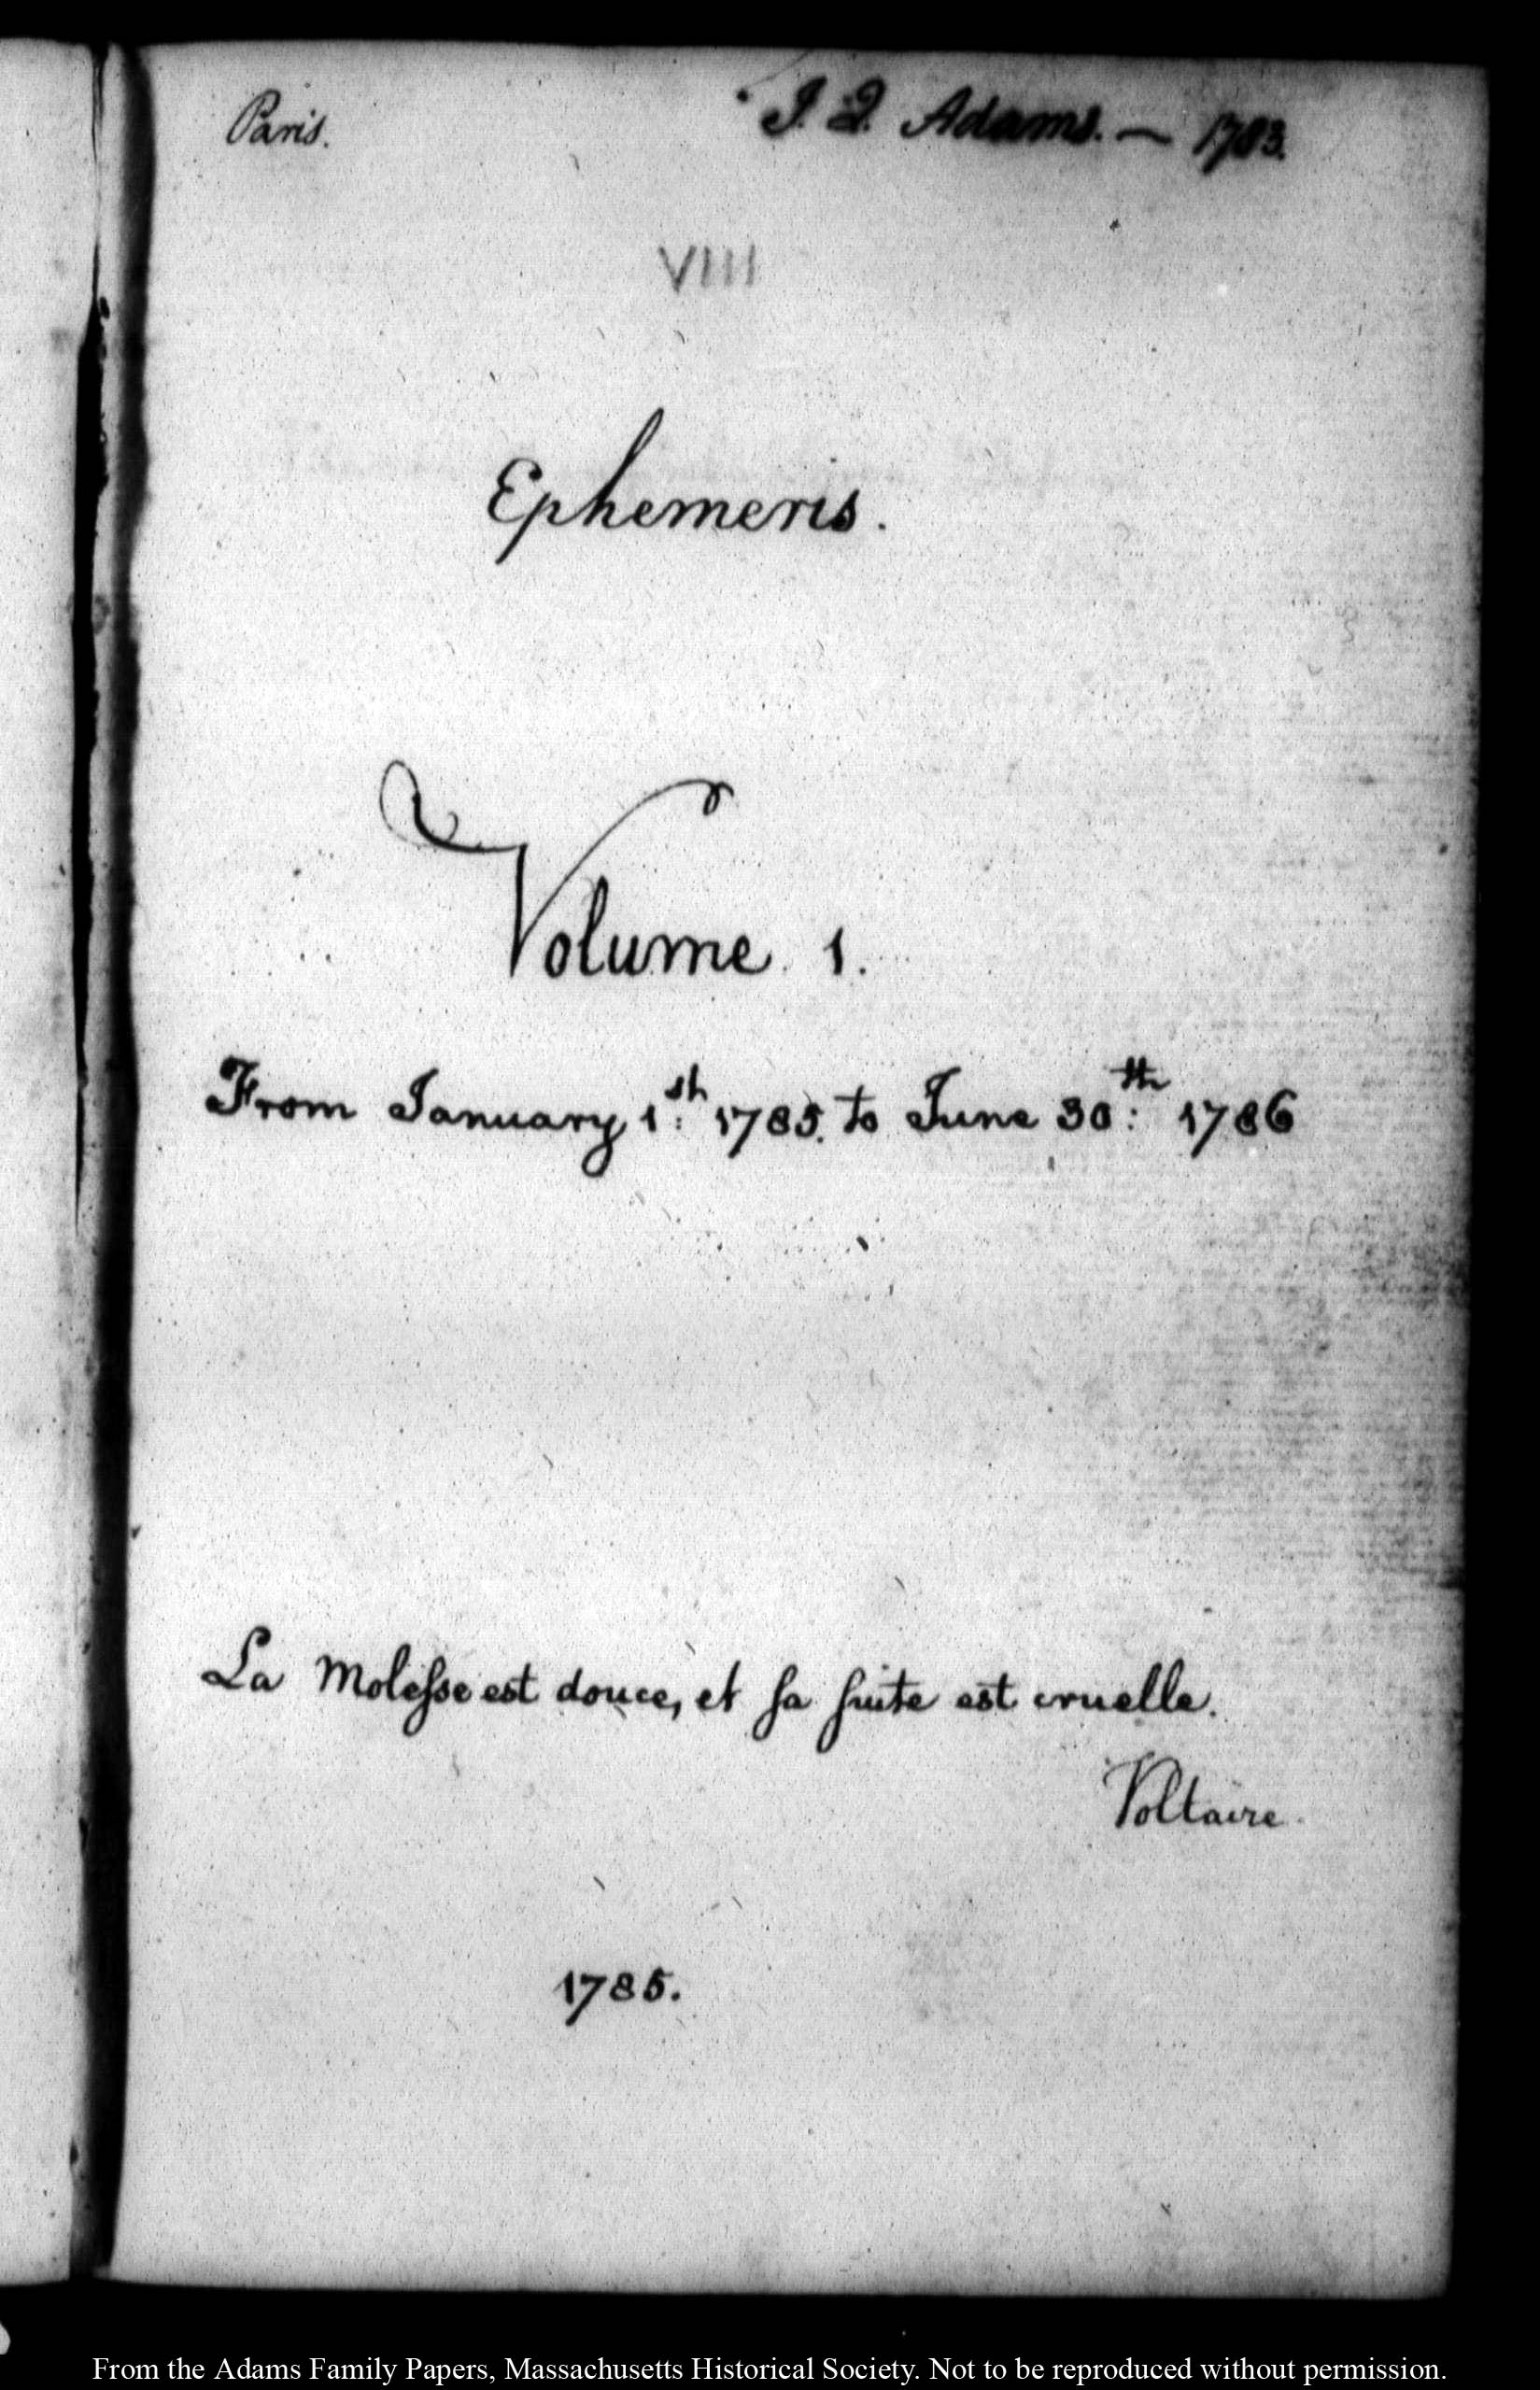 Paris. J. Q. Adams. — 1783.
VIII
Ephemeris.
Volume 1.
From January 1.st 1785. to June 30:th 1786
La Molesse est douce, et sa suite est cruelle.
Voltaire
1785.
From the Adams Family Papers, Massachusetts Historical Society. Not to be reproduced without permission.